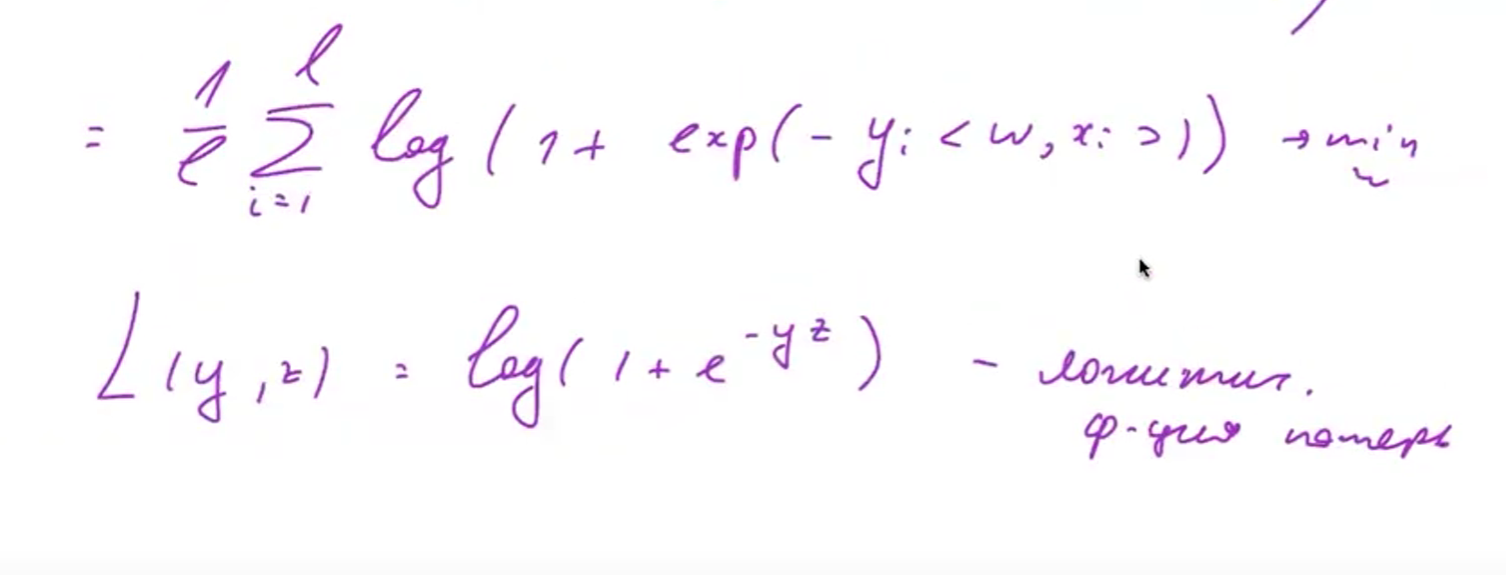 = 1/ℓ ∑_{i=1}^{ℓ} log(1 + exp(- y_i <w, x_i>)) → min_w
L(y, z) = log(1 + e^{-yz}) - логистич.
ф-ция потерь